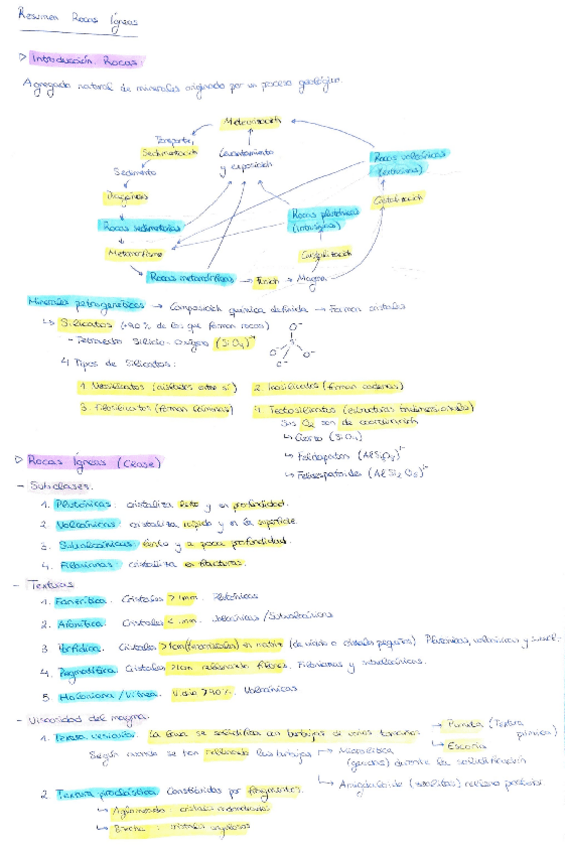 Resumen Rocas Ígneas
▷ Introducción. Rocas:
Agregado natural de minerales originado por un proceso geológico.
Meteorización
Transporte,
Sedimentación
Levantamiento
y exposición
Rocas volcánicas
(extrusivas)
Sedimento
Diagénesis
Cristalización
Rocas sedimentarias
Rocas plutónicas
(intrusivas)
Metamorfismo
Cristalización
Rocas metamórficas → Fusión → Magma
Minerales petrogenéticos → Composición química definida → Forman cristales
↳ Silicatos (+90% de los que forman rocas)
- Tetraedro Silicio-Oxígeno (SiO4)
O⁻
O⁻
O⁻
O⁻
4 Tipos de Silicatos:
1. Nesosilicatos (aislados entre sí)
2. Inosilicatos (forman cadenas)
3. Filosilicatos (forman láminas)
4. Tectosilicatos (estructuras tridimensionales)
Sus O2 son de coordinación
↳ Cuarzo (SiO2)
↳ Feldespatos (AlSi3O8)
↳ Feldespatoides (AlSi2O6)
▷ Rocas Ígneas (Clase)
- Subclases.
1. Plutónicas: cristaliza lento y en profundidad.
2. Volcánicas: cristaliza rápido y en la superficie.
3. Subvolcánicas: lento y a poca profundidad.
4. Filonianas: cristaliza en fracturas.
- Texturas
1. Fanerítica. Cristales >1mm. Plutónicas
2. Afanítica. Cristales < mm. Volcánicas/Subvolcánicas
3. Porfídica. Cristales >1cm (fenocristales) en matriz (de vidrio o cristales pequeños) Plutónicas, volcánicas y subvolc.
4. Pegmatítica. Cristales >1cm rellenando filones. Filonianas y subvolcánicas.
5. Holohialina/Vítrea. Vidrio >90%. Volcánicas
- Viscosidad del magma.
1. Textura vesicular. La lava se solidifica con burbujas de varios tamaños → Pumita (Textura pumítica)
↳ Escoria
Según cuando se han rellenado las burbujas → Miarolítica
(gaseosas) durante la solidificación
↳ Amigdaloide relleno posterior
2. Textura piroclástica. Constituidas por fragmentos.
↳ Aglomerado: cristales redondeados
↳ Brecha: cristales angulosos